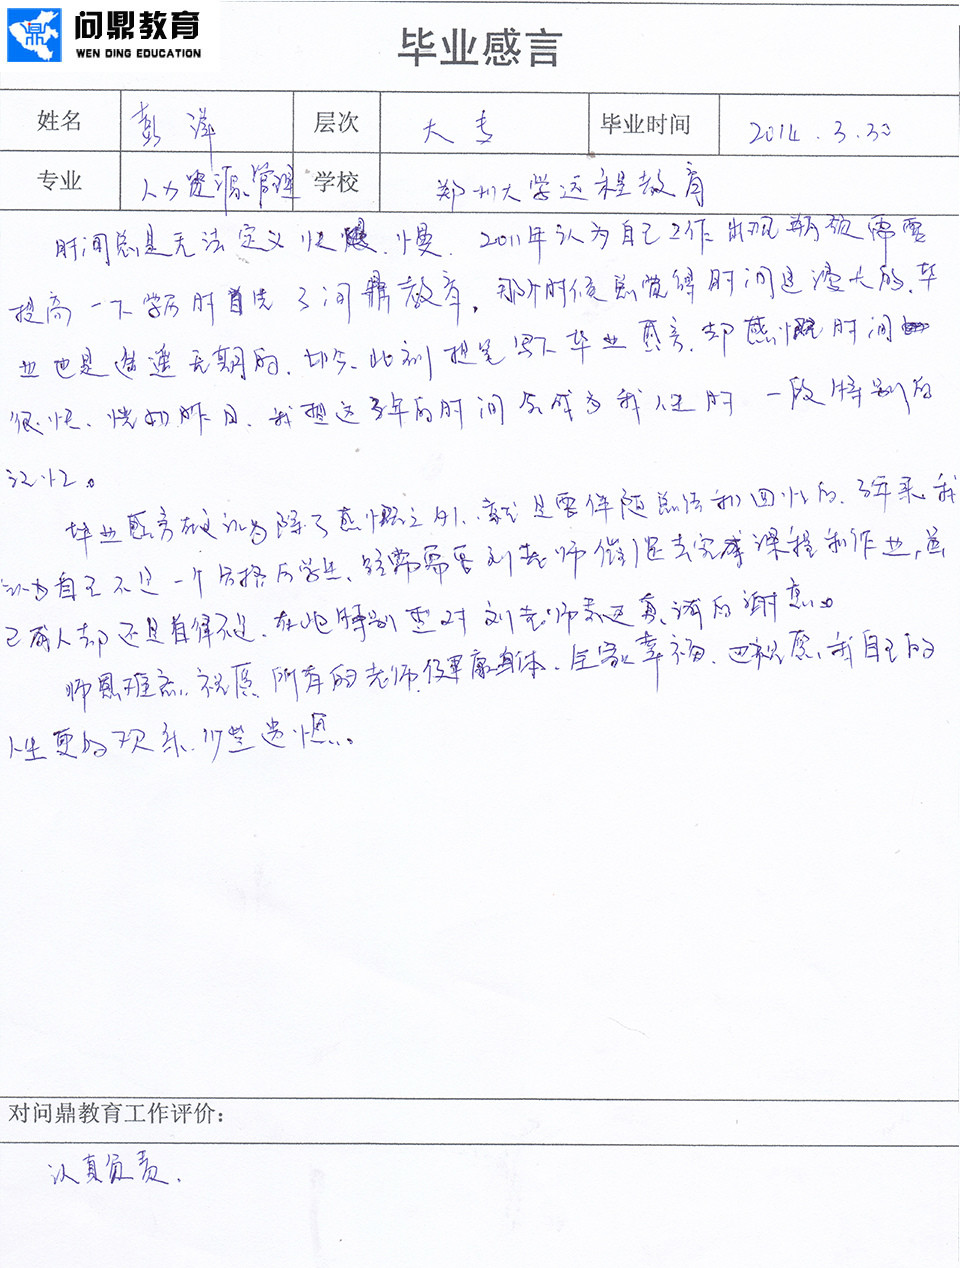 问鼎教育
WEN DING EDUCATION
毕业感言
姓名 彭萍 层次 大专 毕业时间 2014.3.30
专业 人力资源管理 学校 郑州大学远程教育
时间总是无法定义快慢.慢. 2011年认为自己工作出现瓶颈需要
提高一下学历时首选了问鼎教育,那个时候总觉得时间是漫长的,毕
业也是遥遥无期的.如今此刻提笔写下毕业感言,却感慨时间
很快、恍如昨日.我想这3年的时间会成为我人生的一段特别的
记忆。
毕业感言在认为除了感慨之外,就是要伴随总结和回忆的.3年来我
认为自己不是一个合格的学生,经常需要刘老师催促去完成课程和作业,
己成人却还是自律不足.在此特别要对刘老师表达真诚的谢意。
师恩难忘.祝愿所有的老师健康身体.全家幸福.也祝愿我自己的
人生更的欢乐.少些遗憾。
对问鼎教育工作评价:
认真负责.